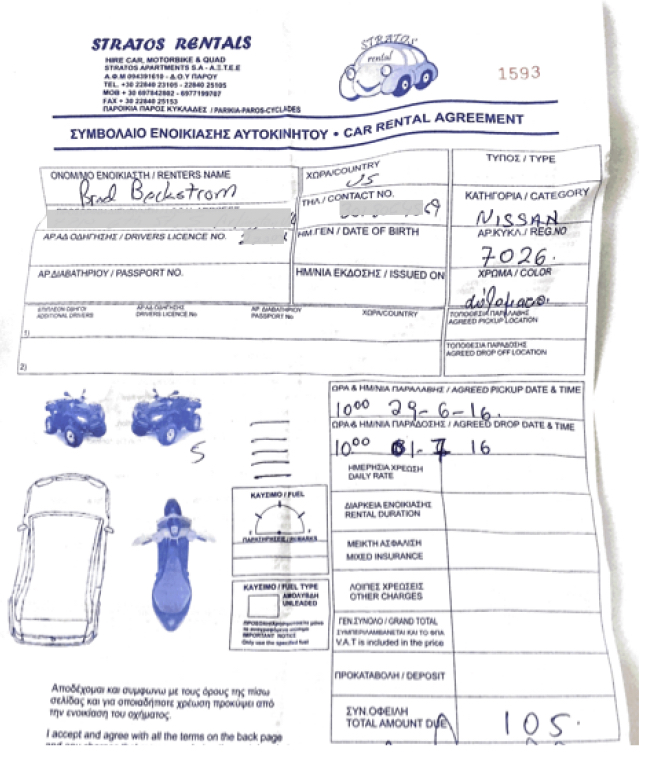 STRATOS RENTALS
HIRE CAR, MOTORBIKE & QUAD
STRATOS APARTMENTS S.A - Α.Ξ.Τ.Ε.Ε
Α.Φ.Μ 094391610 - Δ.Ο.Υ ΠΑΡΟΥ
TEL. +30 22840 23105 - 22840 25105
MOB + 30 697842882 - 6977199767
FAX + 30 22840 25153
ΠΑΡΟΙΚΙΑ ΠΑΡΟΣ ΚΥΚΛΑΔΕΣ / PARIKIA-PAROS-CYCLADES
STRATOS
rental
1593
ΣΥΜΒΟΛΑΙΟ ΕΝΟΙΚΙΑΣΗΣ ΑΥΤΟΚΙΝΗΤΟΥ • CAR RENTAL AGREEMENT
ΟΝΟΜ/ΜΟ ΕΝΟΙΚΙΑΣΤΗ / RENTERS NAME
Brad Beckstrom
ΧΩΡΑ/COUNTRY
US
ΤΥΠΟΣ / TYPE
ΤΗΛ / CONTACT NO.
69
ΚΑΤΗΓΟΡΙΑ / CATEGORY
NISSAN
ΑΡ.ΑΔ ΟΔΗΓΗΣΗΣ / DRIVERS LICENCE NO.
ΗΜ.ΓΕΝ / DATE OF BIRTH
ΑΡ.ΚΥΚΛ / REG.NO
7026.
ΑΡ.ΔΙΑΒΑΤΗΡΙΟΥ / PASSPORT NO.
ΗΜ/ΝΙΑ ΕΚΔΟΣΗΣ / ISSUED ON
ΧΡΩΜΑ / COLOR
ΕΠΙΠΛΕΟΝ ΟΔΗΓΟΙ
ADDITIONAL DRIVERS
ΑΡ.ΑΔ.ΟΔΗΓΗΣΗΣ
DRIVERS LICENCE No
ΑΡ. ΔΙΑΒΑΤΗΡΙΟΥ
PASSPORT No
ΧΩΡΑ/COUNTRY
ΤΟΠΟΘΕΣΙΑ ΠΑΡΑΛΑΒΗΣ
AGREED PICKUP LOCATION
1)
ΤΟΠΟΘΕΣΙΑ ΠΑΡΑΔΟΣΗΣ
AGREED DROP OFF LOCATION
2)
ΩΡΑ & ΗΜ/ΝΙΑ ΠΑΡΑΛΑΒΗΣ / AGREED PICKUP DATE & TIME
10⁰⁰ 29-6-16.
ΩΡΑ & ΗΜ/ΝΙΑ ΠΑΡΑΔΟΣΗΣ / AGREED DROP DATE & TIME
10⁰⁰ 1-7 16
S
ΗΜΕΡΗΣΙΑ ΧΡΕΩΣΗ
DAILY RATE
ΚΑΥΣΙΜΟ / FUEL
ΠΑΡΑΤΗΡΗΣΕΙΣ / REMARKS
ΔΙΑΡΚΕΙΑ ΕΝΟΙΚΙΑΣΗΣ
RENTAL DURATION
ΜΕΙΚΤΗ ΑΣΦΑΛΙΣΗ
MIXED INSURANCE
ΚΑΥΣΙΜΟ / FUEL TYPE
ΑΜΟΛΥΒΔΗ
UNLEADED
IMPORTANT NOTICE
Only use the specified fuel
ΛΟΙΠΕΣ ΧΡΕΩΣΕΙΣ
OTHER CHARGES
ΓΕΝ.ΣΥΝΟΛΟ / GRAND TOTAL
ΣΥΜΠΕΡΙΛΑΜΒΑΝΕΤΑΙ ΚΑΙ ΤΟ ΦΠΑ
V.A.T is included in the price
ΠΡΟΚΑΤΑΒΟΛΗ / DEPOSIT
ΣΥΝ.ΟΦΕΙΛΗ
TOTAL AMOUNT DUE
105.
Αποδέχομαι και συμφωνω με τους όρους της πίσω
σελίδας και για οποιαδήποτε χρέωση προκύψει από
την ενοικίαση του οχήματος.
I accept and agree with all the terms on the back page